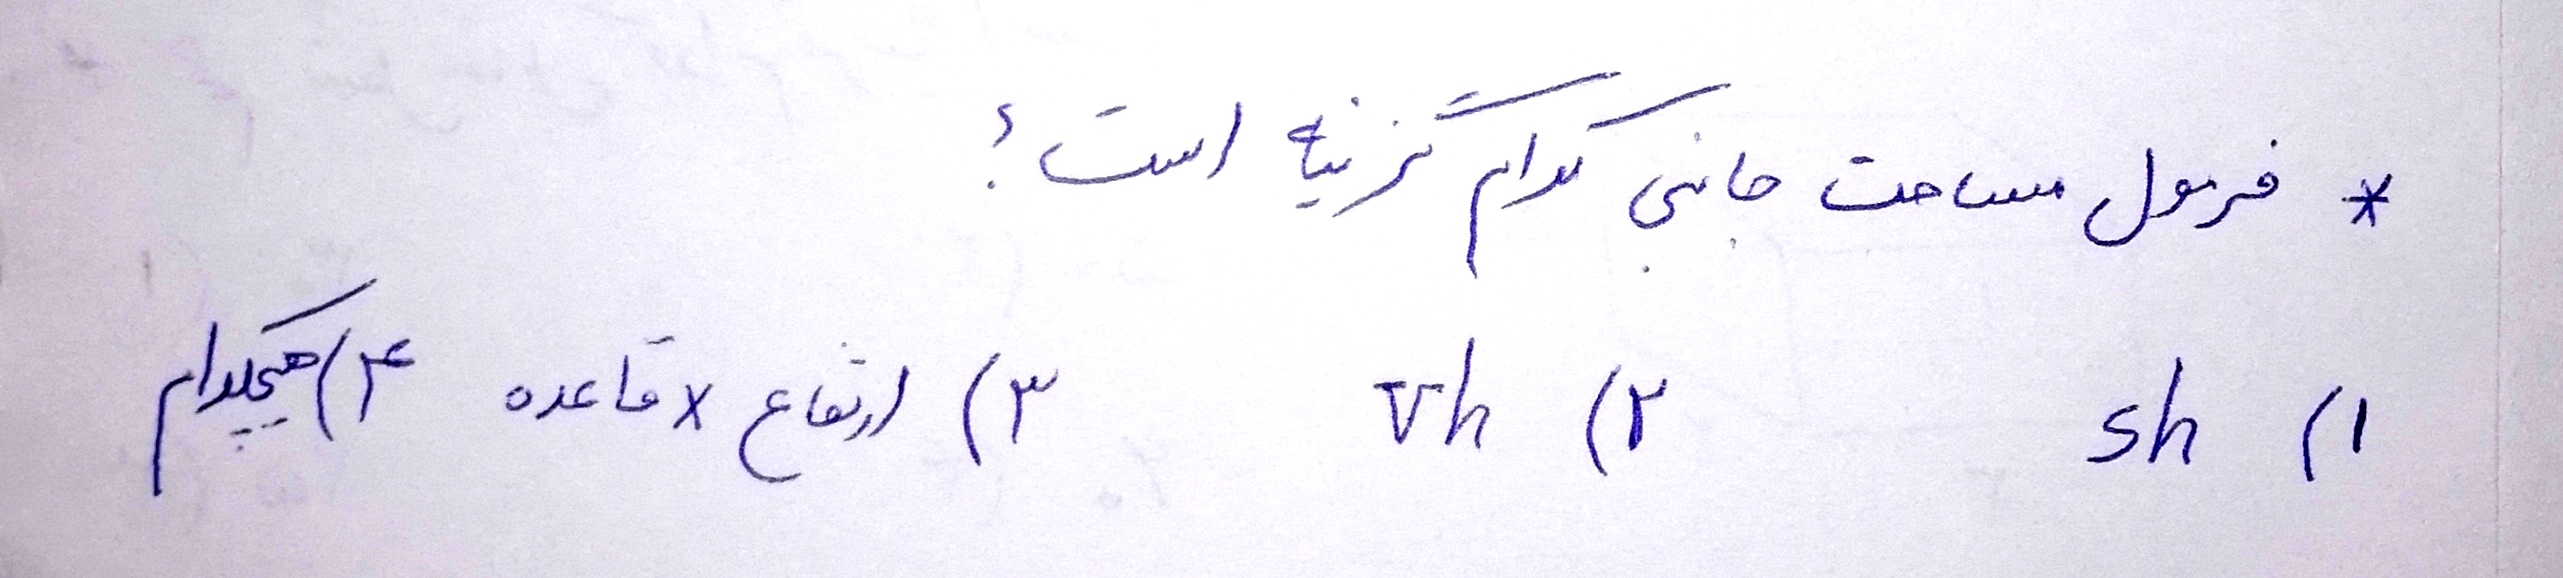 * فرمول مساحت جانبی کدام گزینه است؟
۱) sh ۲) vh ۳) ارتفاع × قاعده ۴) هیچکدام